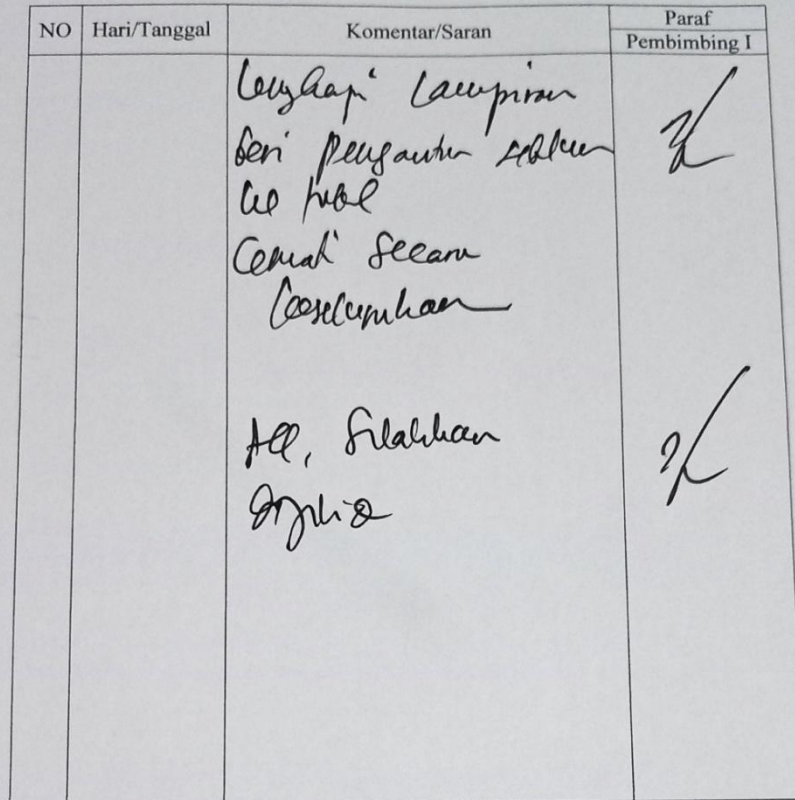 NO Hari/Tanggal Komentar/Saran Paraf
Pembimbing I
Lengkapi Lampiran
Beri pengantar sebelum
ke tabel
Cermati secara
keseluruhan
Acc, Silahkan